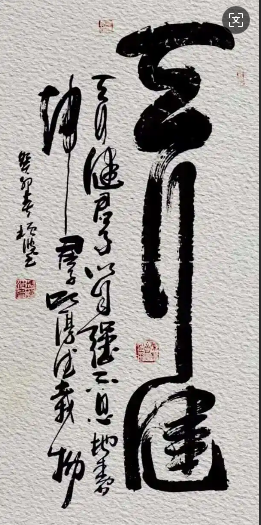 天行健
天行健君子以自強不息地勢
坤君子以厚德載物
癸卯春